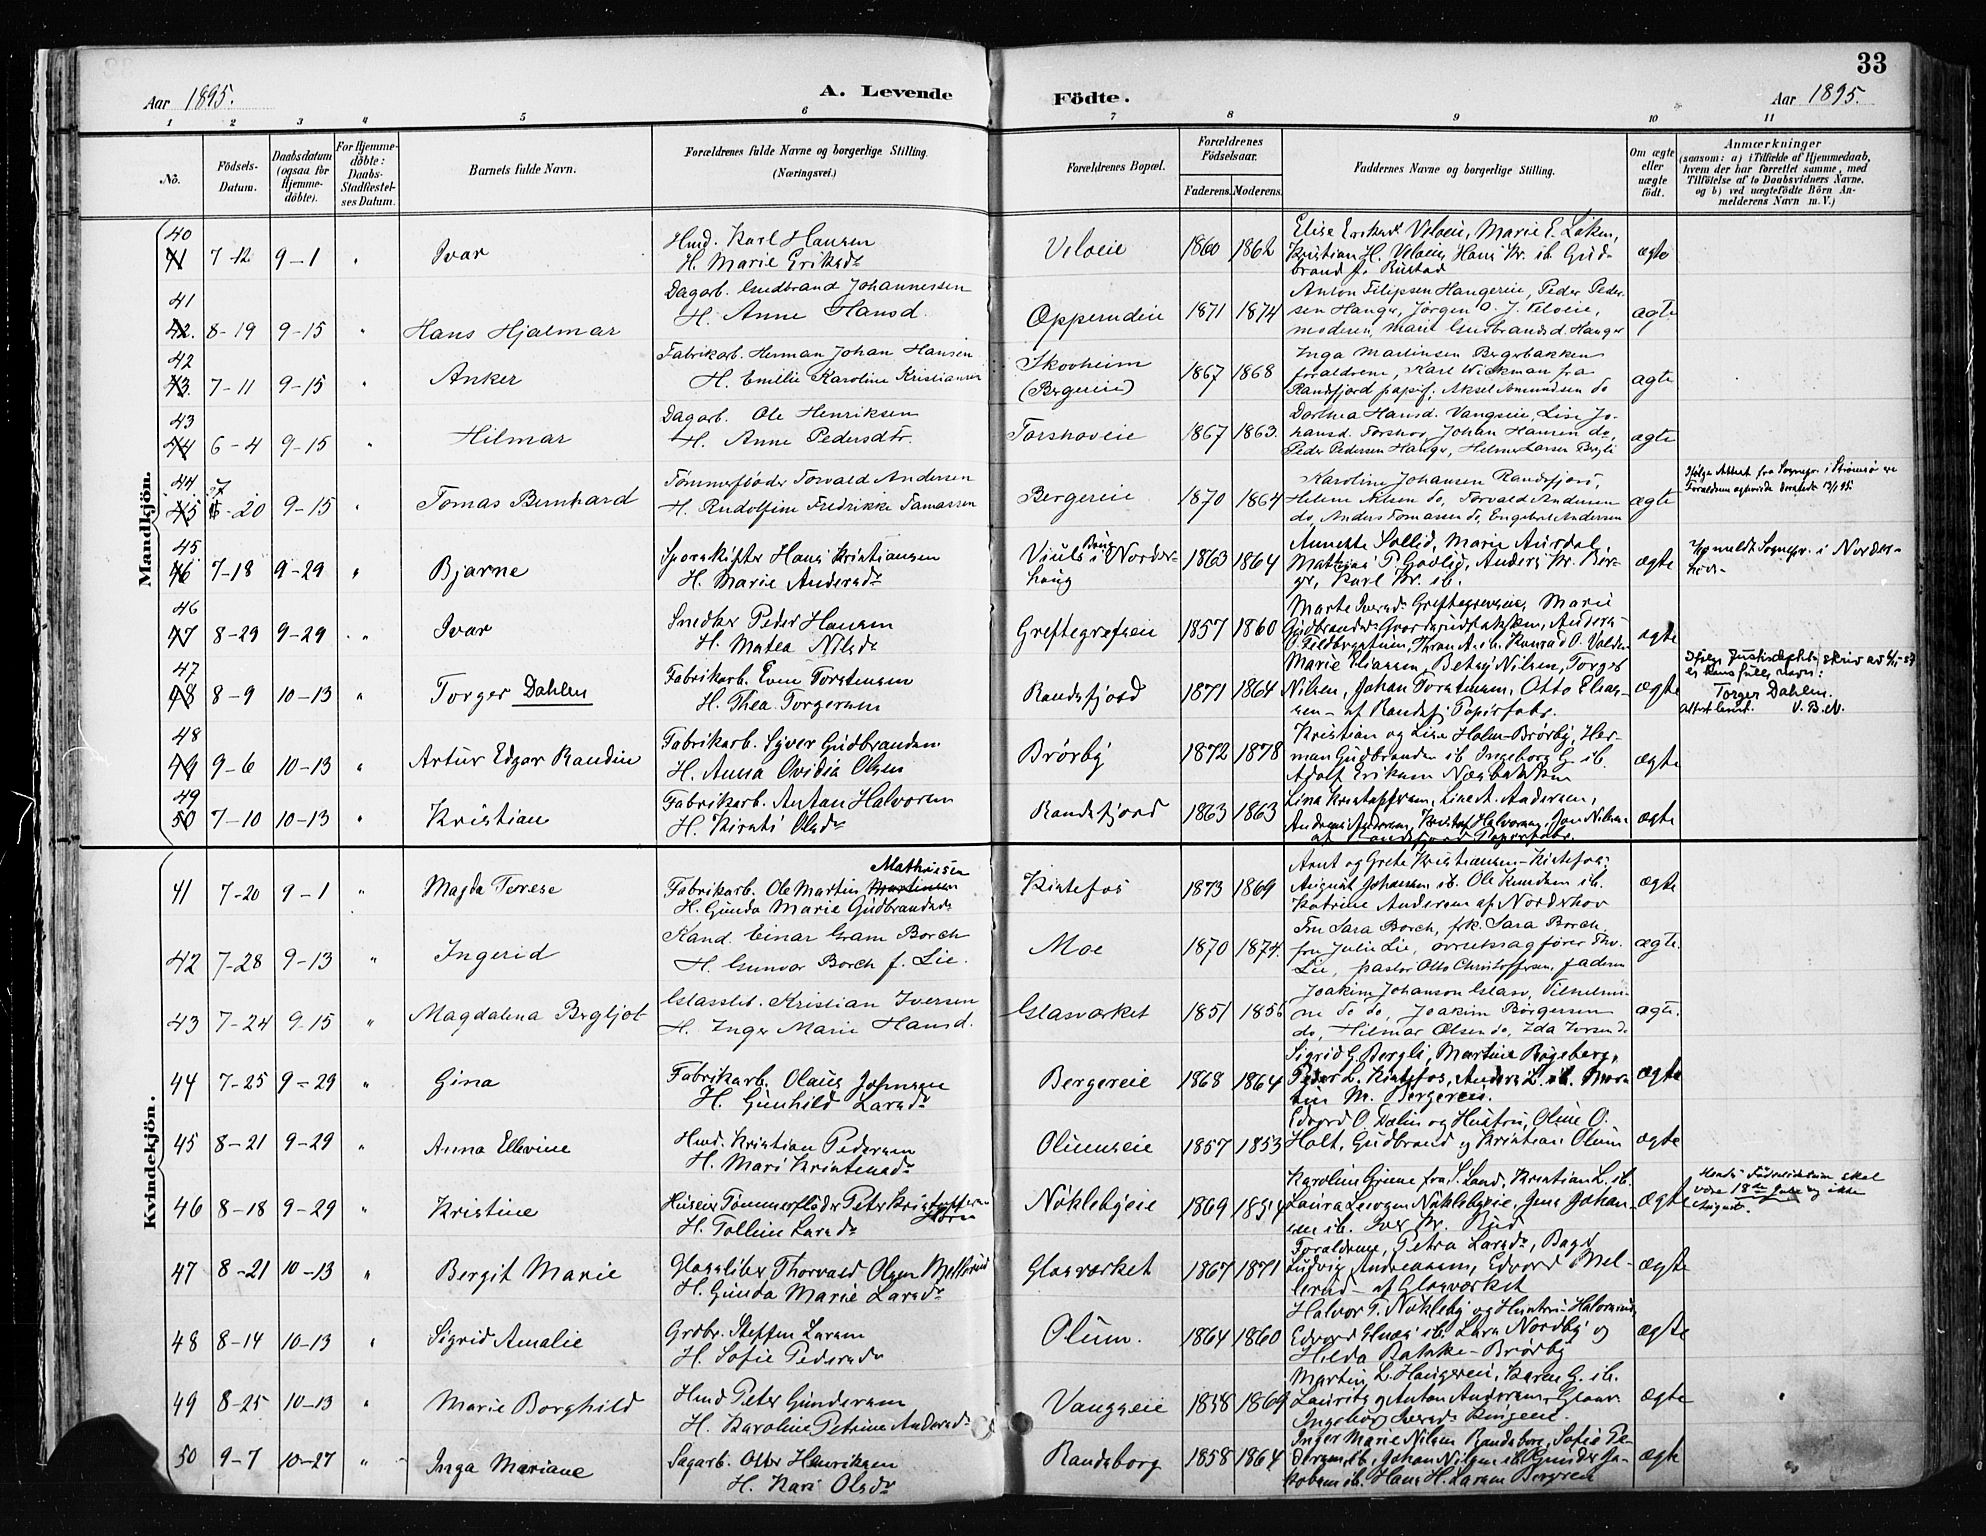 33
Aar 1895.
A. Levende
Födte.
Aar 1895.
1 2 3 4 5 6 7 8 9 10 11
No.
Födsels-
Datum.
Daabsdatum
(ogsaa for
Hjemme-
döbte).
For Hjemme-
döbte:
Daabs-
Stadfæstel-
ses Datum.
Barnets fulde Navn.
Forældrenes fulde Navne og borgerlige Stilling.
(Næringsvei.)
Forældrenes Bopæl.
Forældrenes
Födselsaar.
Faderens. Moderens.
Faddernes Navne og borgerlige Stilling.
Om ægte
eller
uægte
födt.
Anmærkninger
(saasom: a) i Tilfælde af Hjemmedaab,
hvem der har forrettet samme, med
Tilföielse af to Daabsvidners Navne,
og b) ved uægtefödte Börn An-
melderens Navn m. V.)
Mandkjön.
40
41 7-12 9-1 " Ivar
Hmd. Karl Hansen
H. Marie Eriksdr
Veloeie 1860 1862
Elise Eriksdr Veloeie, Marie E. Løken,
Kristian H. Veloeie, Hans Kr. ib. Gud-
brand Rustad
ægte
41
42. 8-19 9-15 " Hans Hjalmar
Dagarb. Gudbrand Johannessen
H. Anne Hansd.
Opperudeie 1871 1874
Anton Filipsen Hangereie, Peder Peder-
sen Hanger, Jørgen O. J. Veloeie,
moderen, Marie Gudbrandsd. Hanger
ægte
42
43. 7-11 9-15 " Anker
Fabrikarb. Herman Johan Hansen
H. Emilie Karoline Kristiansen
Skovheim
(Bergereie) 1867 1868
Inga Martinsen Bergerbakken
forældrene, Karl Wickman fra
Randsfjord papirf, Aksel Amundsen do
ægte
43
44 6-4 9-15 " Hilmar
Dagarb. Ole Henriksen
H. Anne Pedersdtr.
Torshoveie 1867 1863.
Dorthea Hansd. Vangseie, Lise Jo-
hansd. Torshov, Johan Hansen do,
Peder Pedersen Hanger, Helmer Larsen Bergli
ægte
44
45 7-20 9-15 " Tomas Bernhard
Tømmerfløder Torvald Andersen
H. Rudolfine Fredrikke Tomassen
Bergereie 1870 1864
Karoline Johansen Randsfjord,
Helene Nilsen do, Torvald Andersen
do, Anders Tomassen do, Engebret Andersen
ægte
45
46 7-18 9-29 " Bjarne
Sporskifter Hans Kristiansen
H. Marie Andersdr
Viuls Brug i Norder-
houg 1863 1864
Annette Sollid, Marie Aurdal
Mathias P. Godlid, Anders Kr. Ber-
ger, Karl Kr. ib.
ægte
Anmeldt Sognepr. i Norder-
hov.
46
47 8-23 9-29 " Ivar
Snedker Peder Hansen
H. Matea Nilsdr
Greftegrefseie 1857 1860
Marte Iversdr Greftegrefseie, Marie
ægte
47
48 8-9 10-13 " Torger Dahlen
Fabrikarb. Even Torstensen
H. Thea Torgersen
Randsfjord 1871 1864
Marie Eliassen, Betsy Nilsen, Torger
Nilsen, Johan Torstensen, Otto Elias-
sen - af Randsfj Papirfabr.
ægte
Torger Dahlen.
48
49 9-6 10-13 " Artur Edgar Randin
Fabrikarb. Syver Gudbrandsen
H. Anna Ovidia Olsen
Brørby 1872 1878
Kristian og Lise Holm-Brørby, Her-
man Gudbrandsen ib. Ingeborg G. ib.
Adolf Eriksen Næsbakken
ægte
49
50 7-10 10-13 " Kristian
Fabrikarb. Anton Halvorsen
H. Kirsti Olsdr
Randsfjord 1863 1863
Lina Kristoffersen, Line A. Andersen,
Andreas Andersen, Kristof Halvorsen, Jon Nilsen
af Randsfjord Papirfabr.
ægte
Kvindekjön.
41 7-20 9-1 " Magda Terese
Mathissen
Fabrikarb. Ole Martin Martinsen
H. Gunda Marie Gudbrandsdr
Kistefos 1873 1869
Arnt og Grete Kristiansen-Kistefos;
August Johansen ib. Ole Knudsen ib.
Katrine Andersen af Norderhov
ægte
42 7-28 9-13 " Ingerid
Kand. Einar Gram Borch
H. Gunvor Borch f. Lie.
Moe 1870 1874.
Fru Sara Borch, frk. Sara Borch,
fru Julie Lie, overretssagfører Thv.
Lie, pastor Otto Christoffersen, faderen
ægte.
43 7-24 9-15 " Magdalena Bergljot
Glasslib. Kristian Iversen
H. Inger Marie Hansd.
Glasværket 1851 1856
Joakim Johanson Glasv, Vilhelmi-
ne do do, Joakim Børgersen
do, Hilmar Olsen do, Ida Iversen do
ægte.
44 7-25 9-29 " Gina
Fabrikarb. Olaus Johnsen
H. Gunhild Larsdr
Bergereie 1868 1864
Sigrid G. Bergli, Martine Bøgeberg,
Peder L. Kistefos, Anders L. ib. Mar-
tin M. Bergereie.
ægte
45 8-21 9-29 " Anna Ellevine
Hmd. Kristian Pedersen
H. Mari Kristensdr
Olimseie 1857 1853
Edvard O. Dælin og Hustru, Oline O.
Holt, Gudbrand og Kristian Olum
ægte
46 8-18 9-29 " Kristine
Huseier Tømmerfløder Peter Kristoffersen
H. Polline Larsdr
Nøklebyeie 1869 1854
Karoline Grime fra S. Land, Kristian L. ib.
Laura Nøklebyeie, Jens Johan-
sen ib. Iver Kr. Bud
ægte
Hendes Fødselsdatum skal
være 18de Juli og ikke
August.
47 8-21 10-13 " Bergit Marie
Glassliber Thorvald Olsen Mellerud
H. Gunda Marie Larsdr
Glasværket 1867 1871
Forældrene, Petra Larsdr,
Ludvig Andreassen, Edvard Mel-
lerud - af Glasværket
ægte
48 8-14 10-13 " Sigrid Amalie
Grdbr. Steffen Larsen
H. Sofie Pedersdr
Olum. 1864 1860
Halvor T. Nøkleby og Hustru
Edvard ib. Lars Nordby og
Hilda Bakke-Brørby
ægte
49 8-25 10-13 " Marie Borghild
Hmd Peter Gundersen
H. Karoline Petrine Andersdr
Vangseie 1858 1869
Martin L. Hangereie, Karen G. ib.
Laurits og Anton Andersen
Ingeborg Iversdr Ringeie.
ægte
50 9-7 10-27 " Inga Mariane
Sagarb. Otto Henriksen
H. Kari Olsdr
Randsborg 1858 1864
Inger Marie Nilsen Randsborg, Sofie Pe-
dersen ib, Johan Nilsen ib, Gunder Ja-
kobsen ib. Hans H. Larsen Bergereie
ægte